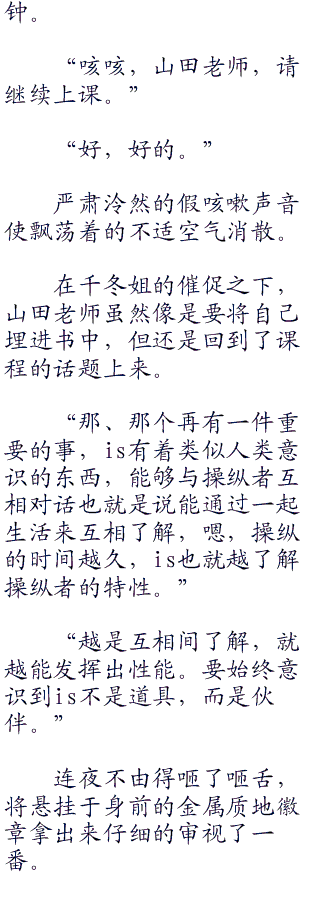 钟。
“咳咳，山田老师，请
继续上课。”
“好，好的。”
严肃泠然的假咳嗽声音
使飘荡着的不适空气消散。
在千冬姐的催促之下，
山田老师虽然像是要将自己
埋进书中，但还是回到了课
程的话题上来。
“那、那个再有一件重
要的事，is有着类似人类意
识的东西，能够与操纵者互
相对话也就是说能通过一起
生活来互相了解，嗯，操纵
的时间越久，is也就越了解
操纵者的特性。”
“越是互相间了解，就
越能发挥出性能。要始终意
识到is不是道具，而是伙
伴。”
连夜不由得咂了咂舌，
将悬挂于身前的金属质地徽
章拿出来仔细的审视了一
番。